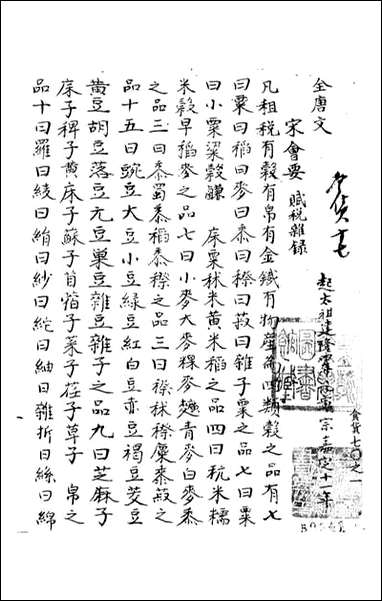 全唐文
宋會要 賦税雜録
食貨七〇之一
凡租税有穀有帛有金鐵有物產為四類穀之品有七
曰粟曰稻曰麥曰黍曰穄曰菽曰雜子粟之品七曰粟
曰小粟粱穀䵖床粟秫米黄米稻之品四曰秔米糯
米穀旱稻麥之品七曰小麥大麥稞麥麵青麥白麥黍
之品三曰黍蜀黍稻黍穄之品三曰穄秫穄糜黍菽之
品十五曰豌豆大豆小豆緑豆紅白豆赤豆褐豆茭豆
黄豆胡豆落豆元豆巢豆雜豆雜子之品九曰芝麻子
床子稗子黄床子蘇子苜蓿子菜子荏子草子 帛之
品十曰羅曰綾曰絹曰紗曰絁曰紬曰雜折曰絲曰綿